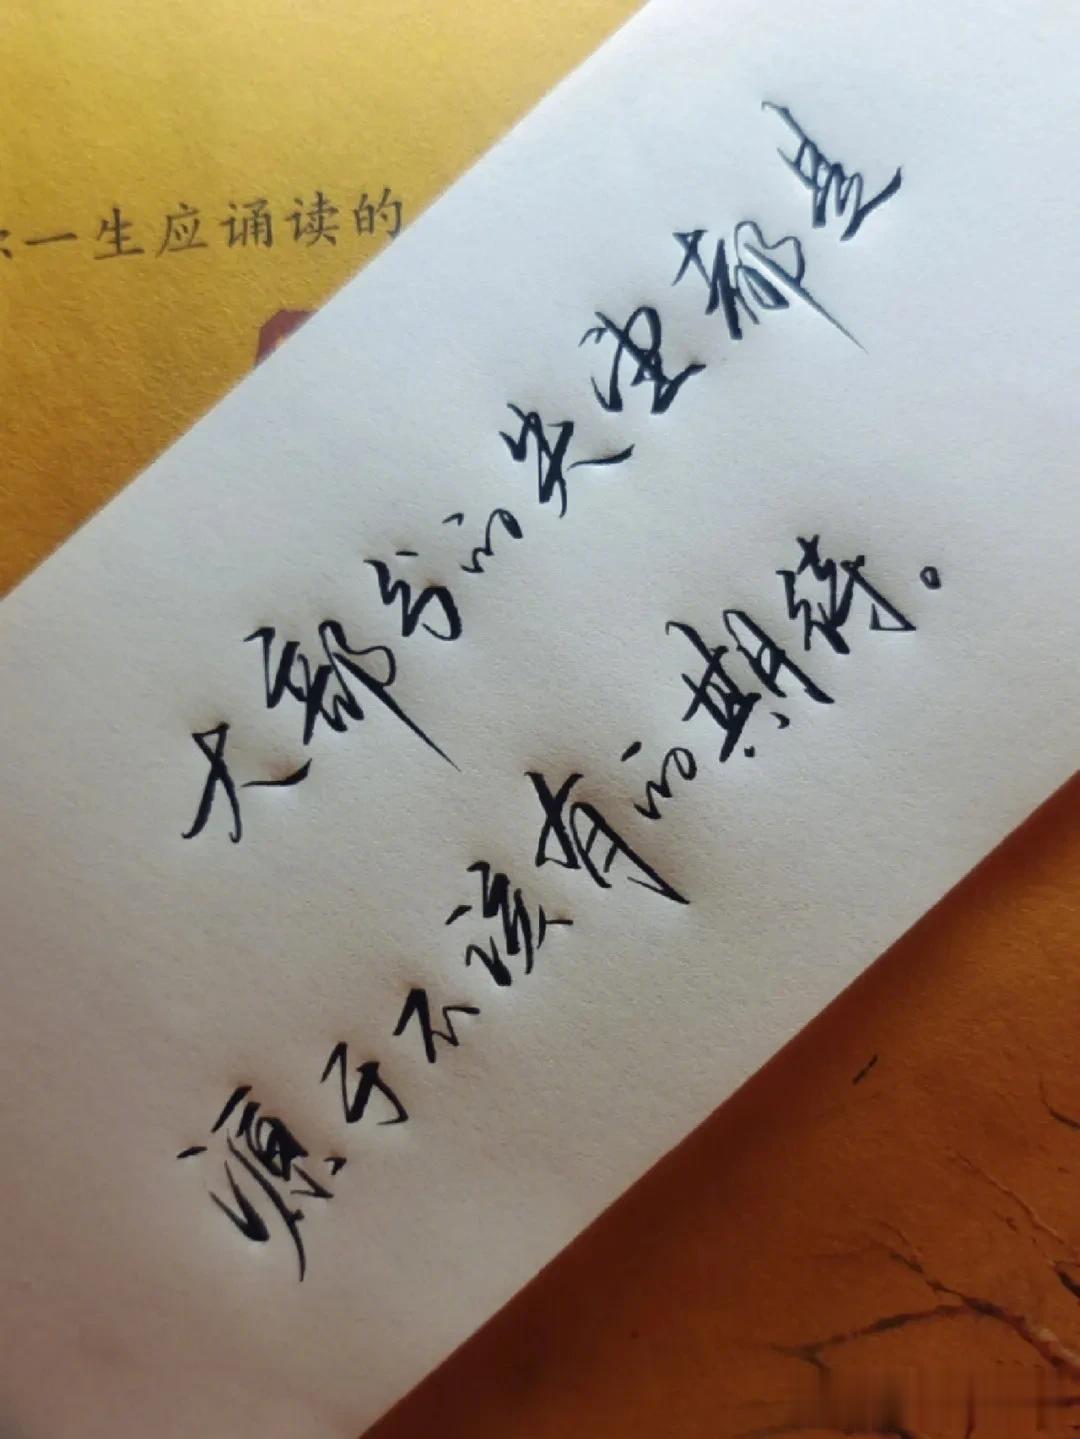 一生应诵读的
大部分的失望都是
源于不该有的期待。